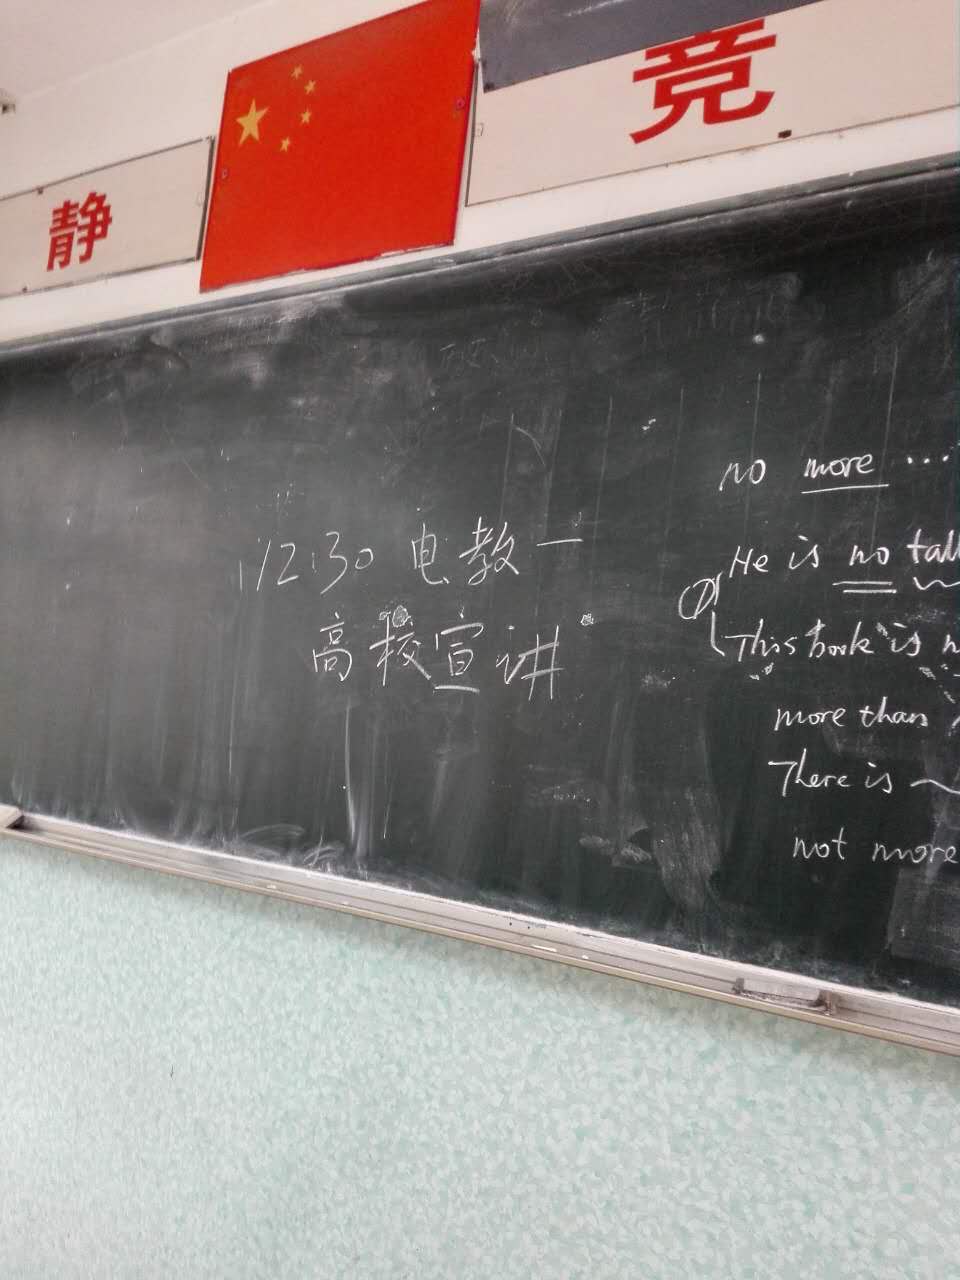 静
竞
12:30 电教一
高校宣讲
no more ...
He is no tall
This book is n
more than
There is ~
not more